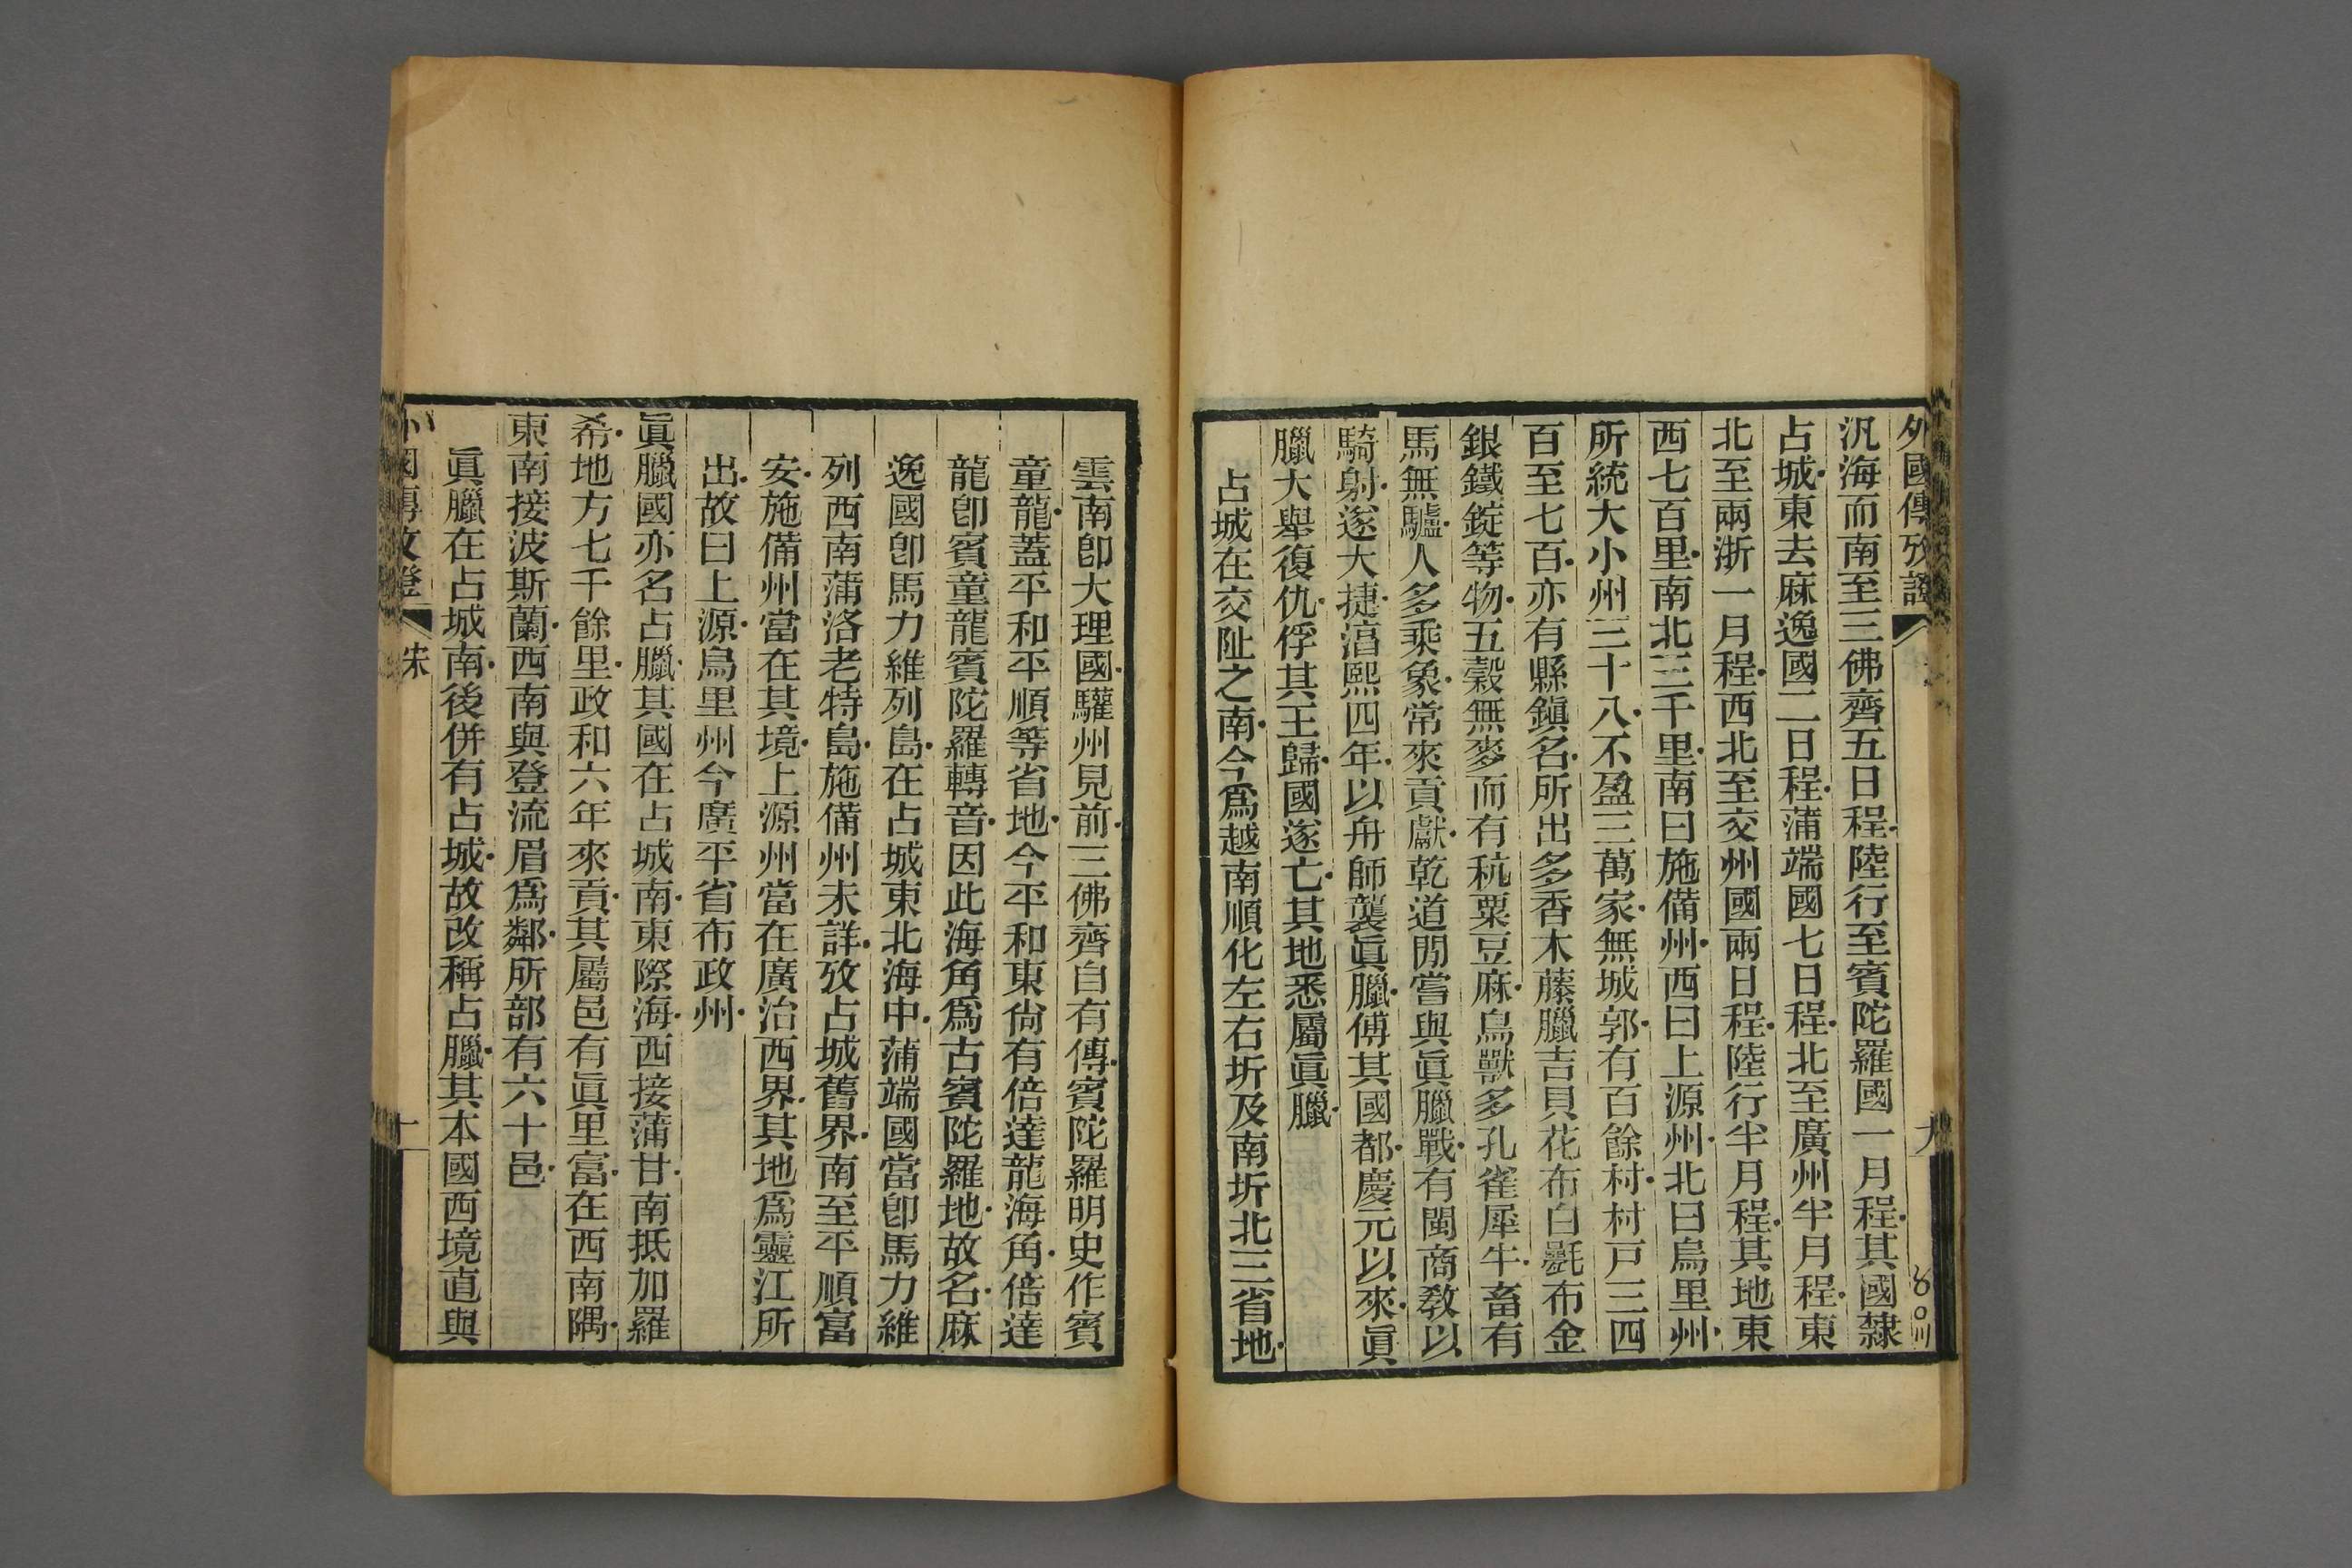 外國傳攷證
汎海而南至三佛齊五日程陸行至賓陀羅國一月程其國隸
占城東去麻逸國二日程蒲端國七日程北至廣州半月程東
北至兩浙一月程西北至交州國兩日程陸行半月程其地東
西七百里南北三千里南曰施備州西曰上源州北曰烏里州
所統大小州三十八不盈三萬家無城郭有百餘村村戸三四
百至七百亦有縣鎭名所出多香木藤臘吉貝花布白㲲布金
銀鐵錠等物五穀無麥而有秔粟豆麻鳥獸多孔雀犀牛畜有
馬無驢人多乘象常來貢獻乾道閒嘗與眞臘戰有閩商敎以
騎射遂大捷湻熙四年以舟師襲眞臘傅其國都慶元以來眞
臘大舉復仇俘其王歸國遂亡其地悉屬眞臘
占城在交阯之南今爲越南順化左右圻及南圻北三省地
雲南卽大理國驩州見前三佛齊自有傳賓陀羅明史作賓
童龍蓋平和平順等省地今平和東尙有倍達龍海角倍達
龍卽賓童龍賓陀羅轉音因此海角爲古賓陀羅地故名麻
逸國卽馬力維列島在占城東北海中蒲端國當卽馬力維
列西南蒲洛老特島施備州未詳攷占城舊界南至平順富
安施備州當在其境上源州當在廣治西界其地爲靈江所
出故曰上源烏里州今廣平省布政州
眞臘國亦名占臘其國在占城南東際海西接蒲甘南抵加羅
希地方七千餘里政和六年來貢其屬邑有眞里富在西南隅
東南接波斯蘭西南與登流眉爲鄰所部有六十邑
眞臘在占城南後併有占城故改稱占臘其本國西境直與
外國傳攷證
宋
十